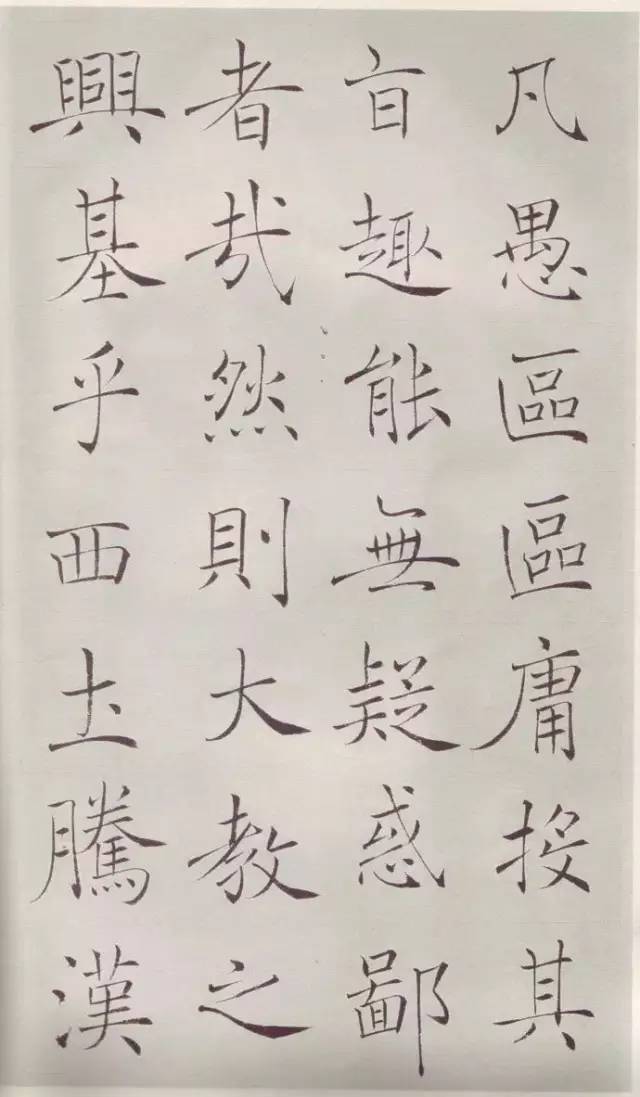 凡愚區區庸投其
㫖趣能無疑惑鄙
者哉然則大教之
興基乎西土騰漢